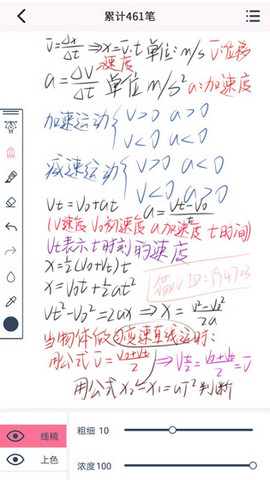 累计461笔
v̄=Δx/Δt ⇒ x=v̄·t 单位:m/s v̄:位移
a=ΔV/Δt →速度 单位 m/s² a:加速度
加速运动{v>0 a>0
v<0 a<0
减速运动{v>0 a<0
v<0 a>0
Vt=V₀+at a=Vt-V₀/t
(V速度 V₀初速度 a加速度 t时间)
Vt表示t时刻的速度
x=½(V₀+Vt)t
x=V₀t+½at²
Vt²-V₀²=2ax ⇒ x=V²-V₀²/2a
当物体做匀变速直线运动时:
用公式 v̄=V₀+Vt/2 ⇒ Vt/2=V₀+Vt/2=v̄
用公式 x₂-x₁=aT² 判断
线稿
粗细 10
上色
浓度100